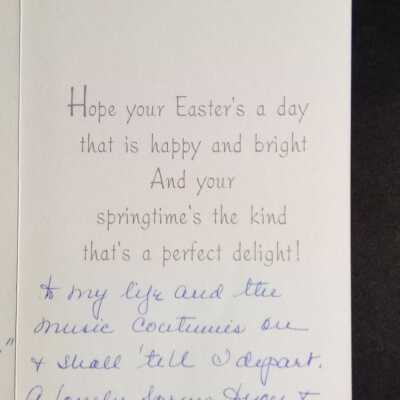 Hope your Easter's a day
that is happy and bright
And your
springtime's the kind
that's a perfect delight!
to my life and the
music continues on
+ shall 'till I depart.
"
A lovely Spring